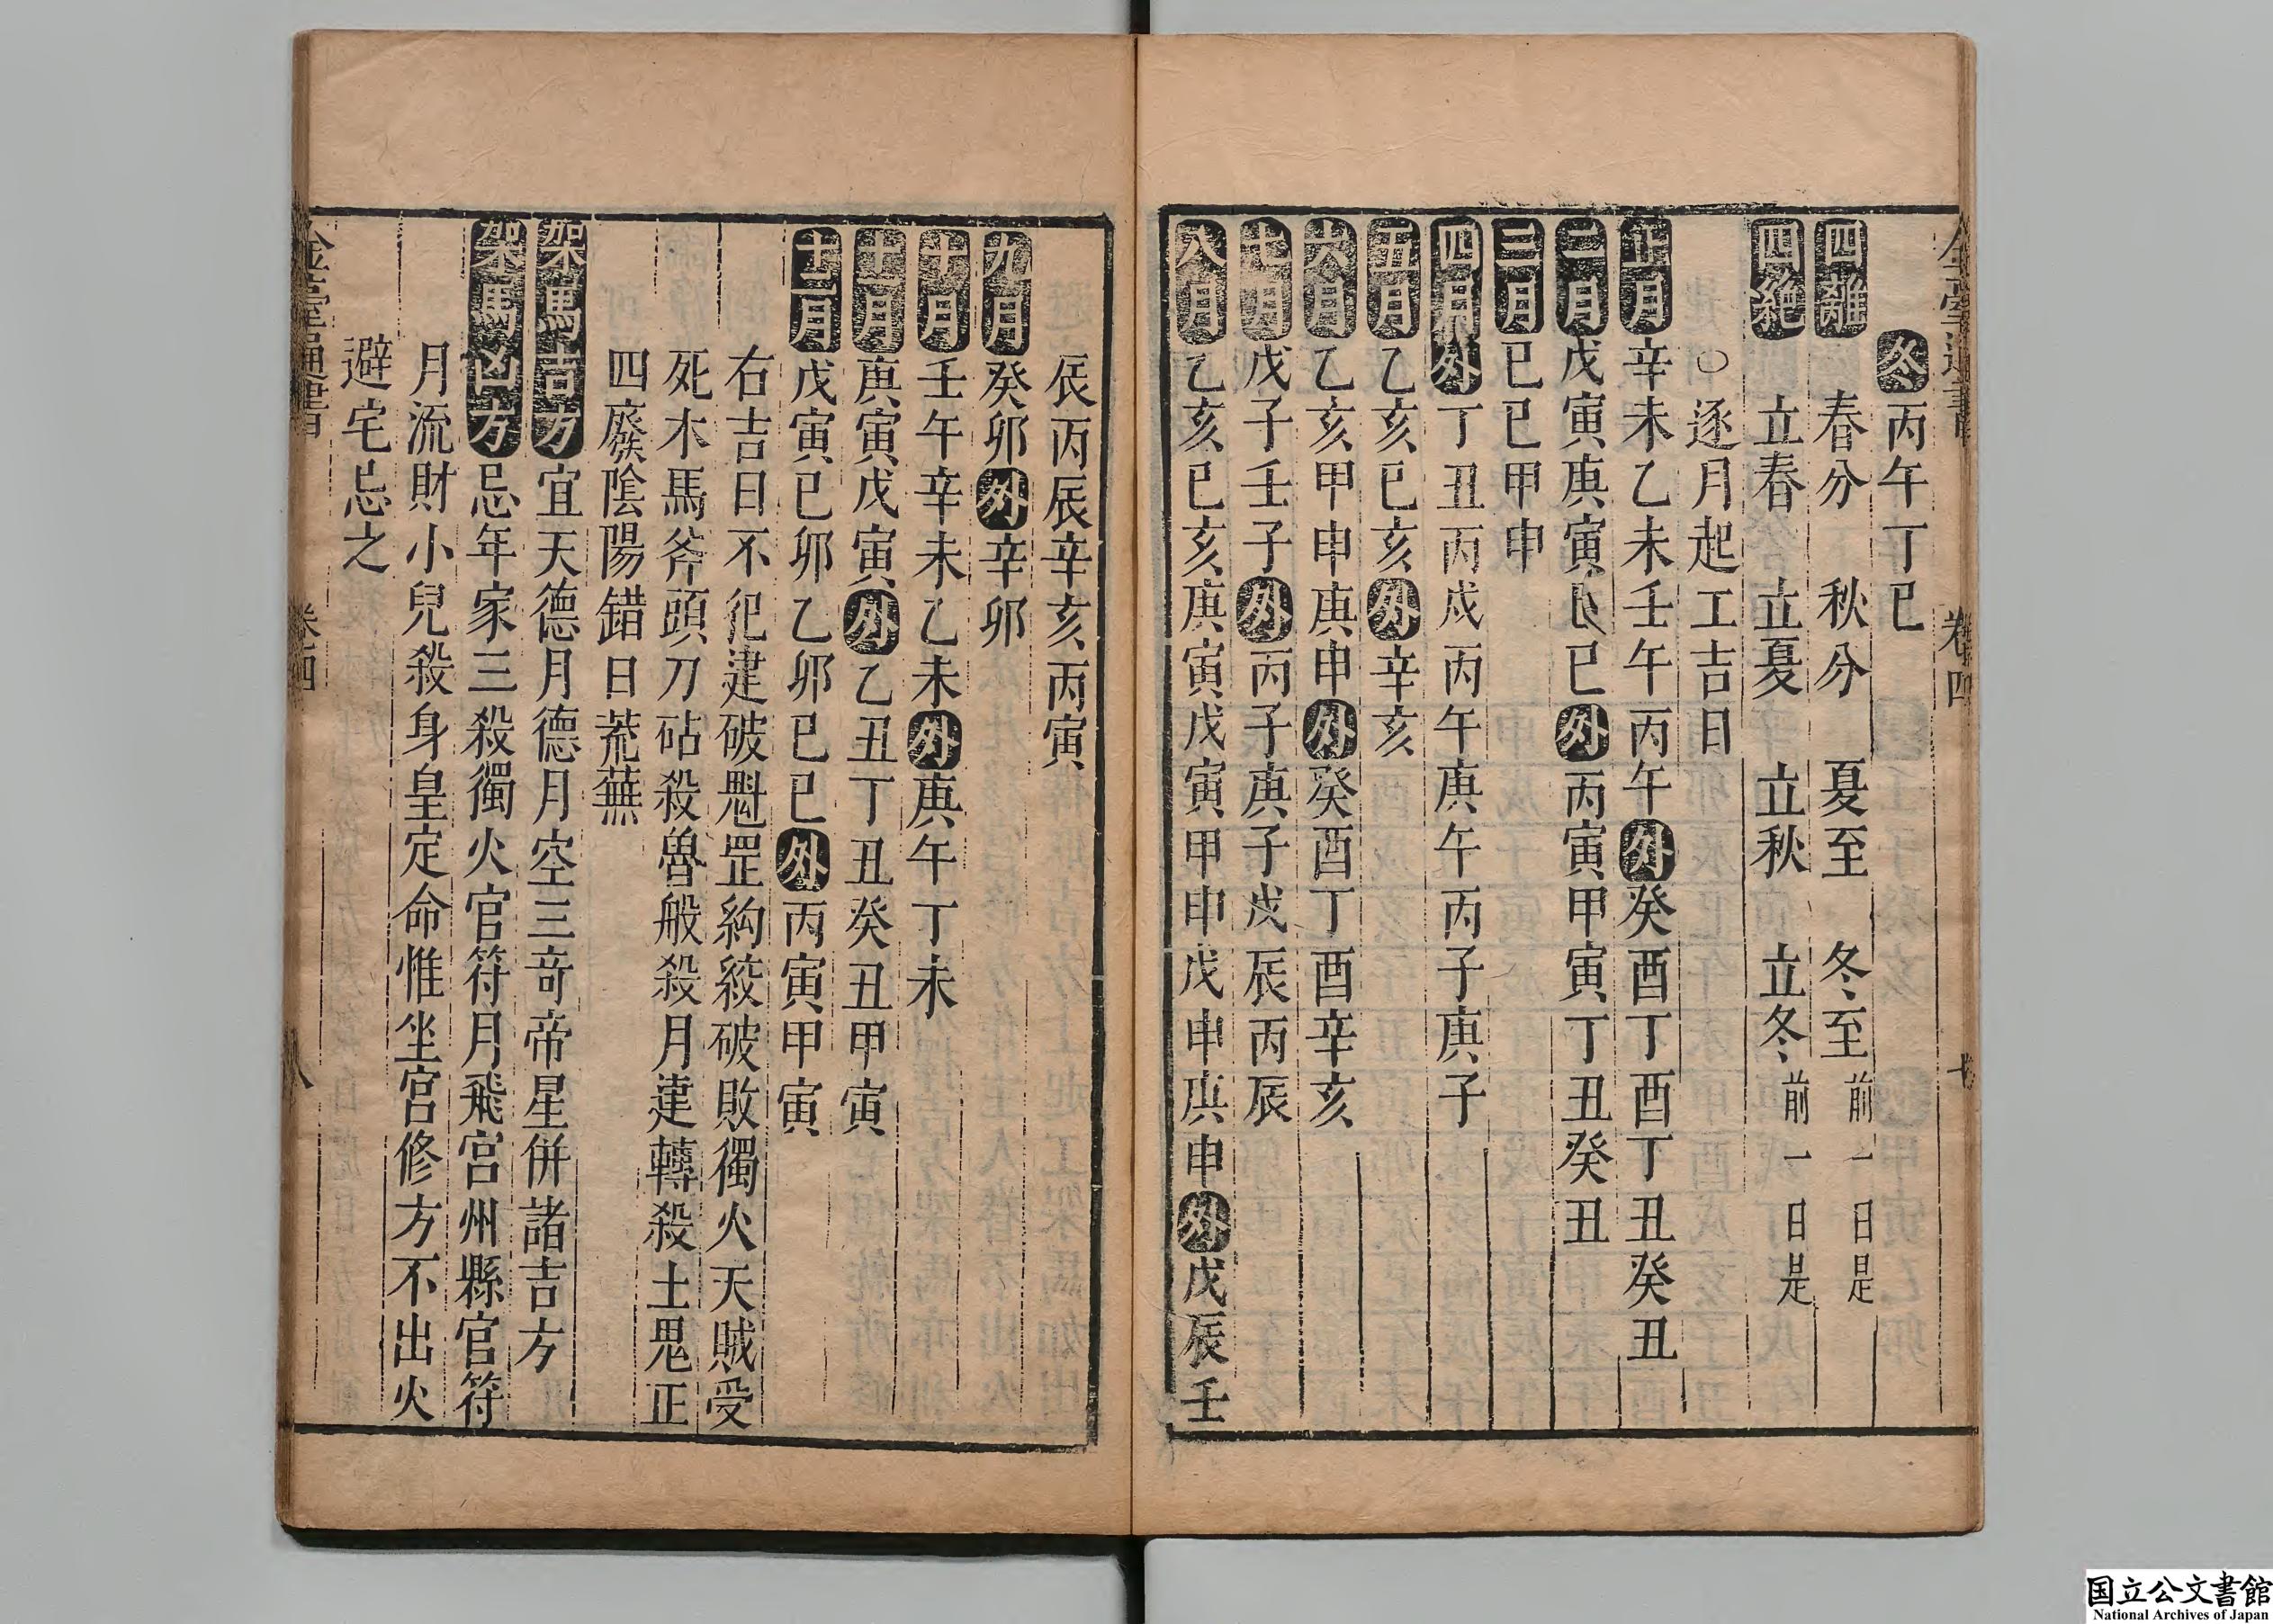 冬丙午丁巳
四離 春分 秋分 夏至 冬至前一日是
四絶 立春 立夏 立秋 立冬前一日是
○逐月起工吉日
正月辛未乙未壬午丙午外癸酉丁酉丁丑癸丑
二月戊寅庚寅已外丙寅甲寅丁丑癸丑
三月已巳甲申
四月外丁丑丙戍丙午庚午丙子庚子
五月乙亥已亥外辛亥
六月乙亥甲申庚申外癸酉丁酉辛亥
七月戊子壬子外丙子庚子戊辰丙辰
八月乙亥已亥庚寅戊寅甲申戊申庚申外戊辰壬
辰丙辰辛亥丙寅
九月癸卯外辛卯
十月壬午辛未乙未外庚午丁未
十一月庚寅戊寅外乙丑丁丑癸丑甲寅
十二月戊寅已卯乙卯已巳外丙寅甲寅
右吉日不犯建破魁罡絇絞破敗獨火天賊受
死木馬斧頭刀砧殺魯般殺月建轉殺土鬼正
四廢陰陽錯日荒蕪
架馬吉方宜天德月德月空三竒帝星併諸吉方
架馬凶方忌年家三殺獨火官符月飛宮州縣官符
月流財小兒殺身皇定命惟坐宮修方不出火
避宅忌之
金臺通書 卷四 八
卷四 七
国立公文書館
National Archives of Japan